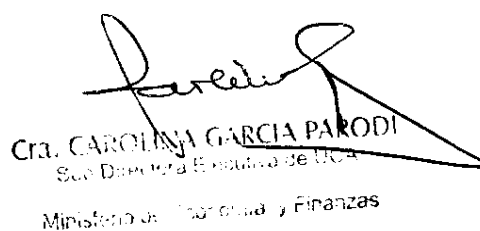 Cra. CAROLINA GARCIA PARODI
Sub Directora Ejecutiva de UCA
Ministerio de Economia y Finanzas